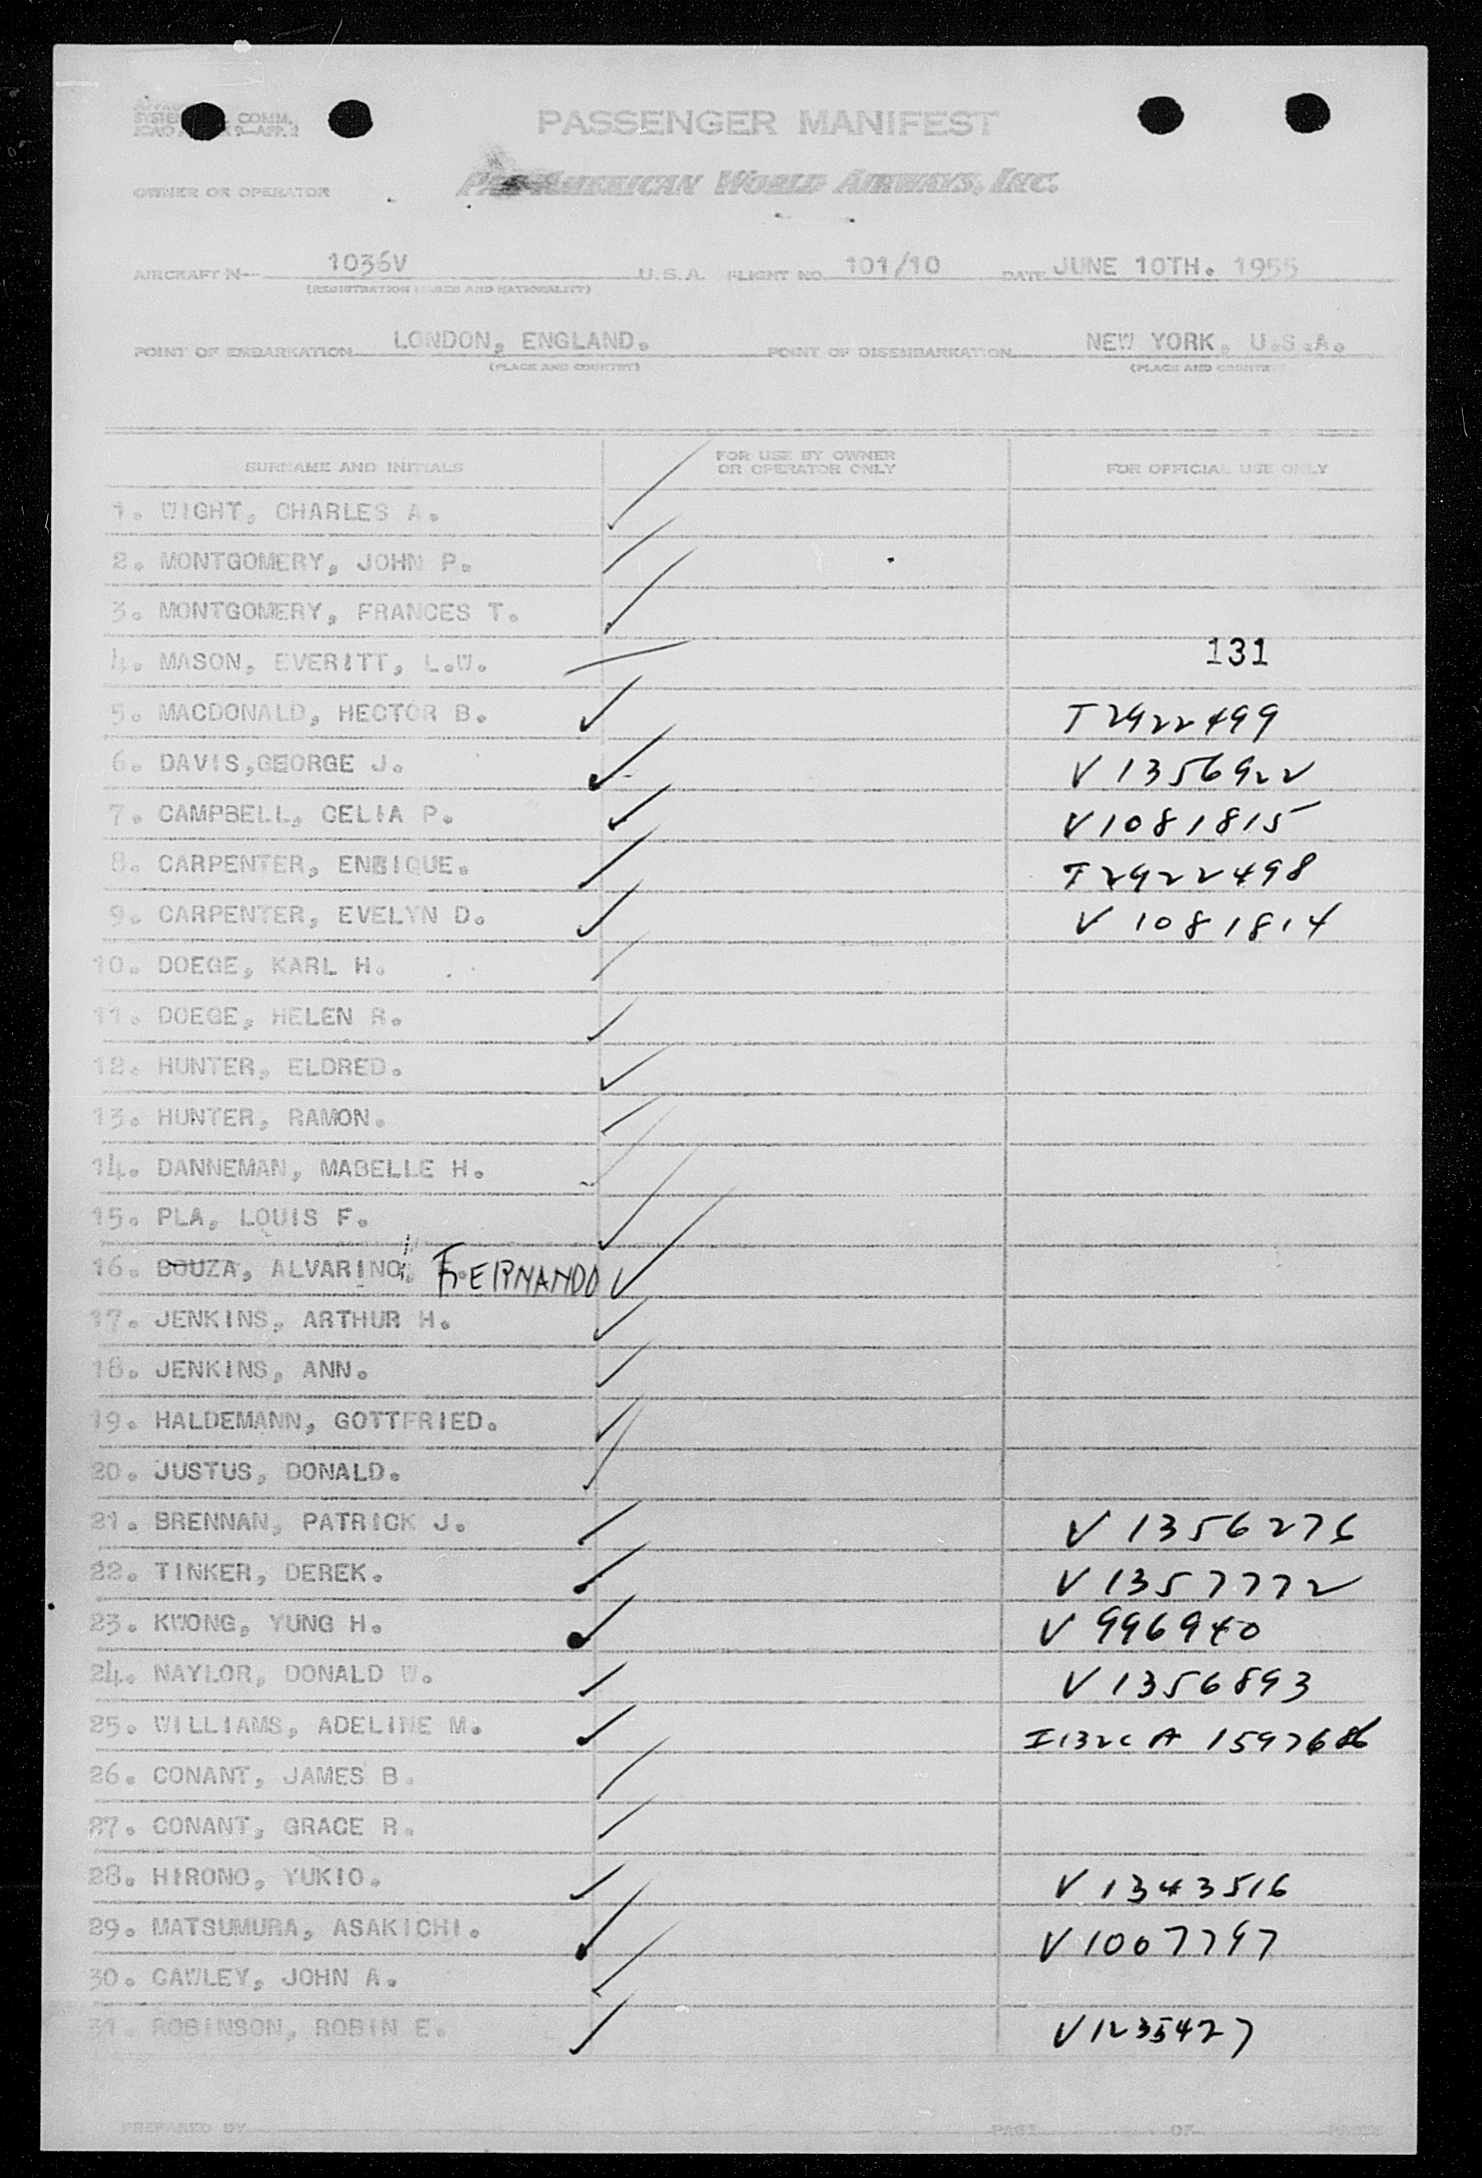 COMM.
PASSENGER MANIFEST
OWNER OR OPERATOR PAN AMERICAN WORLD AIRWAYS, INC.
AIRCRAFT N— 1036V U.S.A. FLIGHT NO. 101/10 DATE JUNE 10TH. 1955
(REGISTRATION MARKS AND NATIONALITY)
POINT OF EMBARKATION LONDON, ENGLAND. POINT OF DISEMBARKATION NEW YORK, U.S.A.
(PLACE AND COUNTRY) (PLACE AND COUNTRY)
SURNAME AND INITIALS FOR USE BY OWNER OR OPERATOR ONLY FOR OFFICIAL USE ONLY
1. WIGHT, CHARLES A.
2. MONTGOMERY, JOHN P.
3. MONTGOMERY, FRANCES T.
4. MASON, EVERITT, L.W. 131
5. MACDONALD, HECTOR B. T2922499
6. DAVIS,GEORGE J. V1356922
7. CAMPBELL, CELIA P. V1081815
8. CARPENTER, ENRIQUE. T2922498
9. CARPENTER, EVELYN D. V1081814
10. DOEGE, KARL H.
11. DOEGE, HELEN R.
12. HUNTER, ELDRED.
13. HUNTER, RAMON.
14. DANNEMAN, MABELLE H.
15. PLA, LOUIS F.
16. SOUZA, ALVARINO, FERNANDO
17. JENKINS, ARTHUR H.
18. JENKINS, ANN.
19. HALDEMANN, GOTTFRIED.
20. JUSTUS, DONALD.
21. BRENNAN, PATRICK J. V1356276
22. TINKER, DEREK. V1357772
23. KWONG, YUNG H. V996940
24. NAYLOR, DONALD W. V1356893
25. WILLIAMS, ADELINE M. I132C A
26. CONANT, JAMES B.
27. CONANT, GRACE R.
28. HIRONO, YUKIO. V1343516
29. MATSUMURA, ASAKICHI. V1007797
30. CAWLEY, JOHN A.
31. ROBINSON, ROBIN E. V1235427
PREPARED BY PAGE OF PAGES